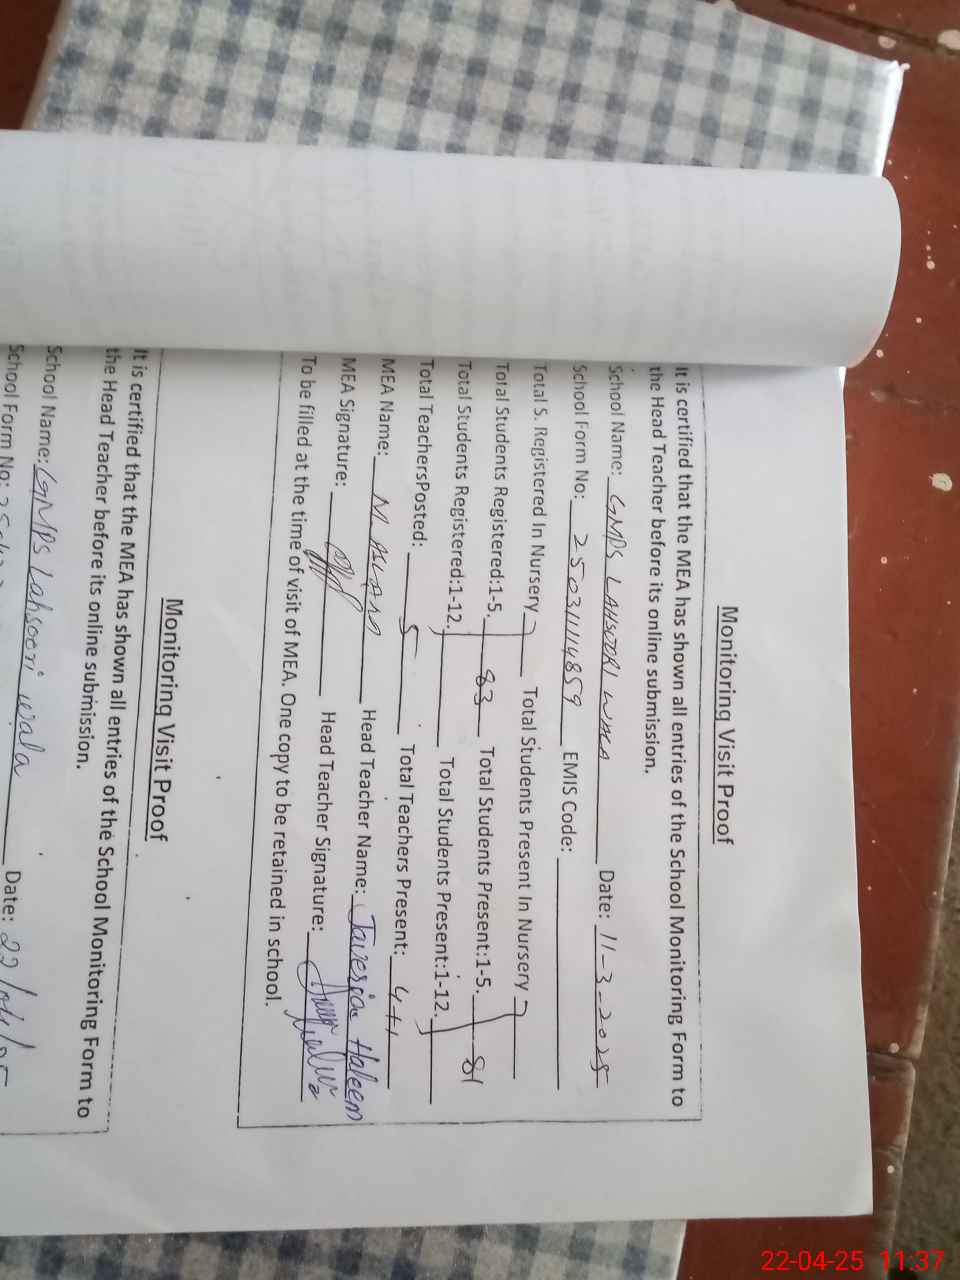 Monitoring Visit Proof
It is certified that the MEA has shown all entries of the School Monitoring Form to
the Head Teacher before its online submission.
School Name: GMPS LAHSOORI WALA Date: 11-3-2025
School Form No: 25031114859 EMIS Code:
Total S. Registered In Nursery Total Students Present In Nursery
Total Students Registered:1-5. 83 Total Students Present:1-5. 81
Total Students Registered:1-12. Total Students Present:1-12.
Total TeachersPosted: 5 Total Teachers Present: 4+1
MEA Name: M. ASLAM Head Teacher Name: Javeria Haleem
MEA Signature: Head Teacher Signature:
To be filled at the time of visit of MEA. One copy to be retained in school.
Monitoring Visit Proof
It is certified that the MEA has shown all entries of the School Monitoring Form to
the Head Teacher before its online submission.
School Name: GMPS Lahsoori wala Date: 22/04/25
School Form No:
22-04-25 11:37